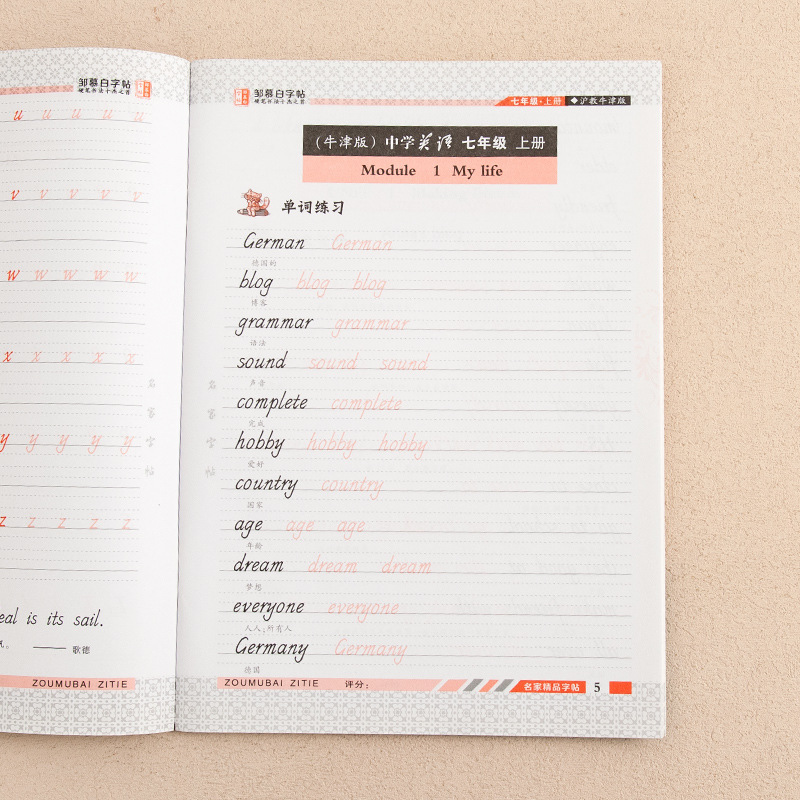 邹慕白字帖
硬笔书法十杰之首
u u u u u
v v v v v
w w w w w
x x x x x
y y y y y
z z z z z
名家字帖
eal is its sail.
—— 歌德
ZOUMUBAI ZITIE
邹慕白字帖
硬笔书法十杰之首
七年级·上册 ◆沪教牛津版
(牛津版) 中学英语 七年级 上册
Module 1 My life
单词练习
German German
德国的
blog blog blog
博客
grammar grammar
语法
sound sound sound
声音
complete complete
完成
hobby hobby hobby
爱好
country country
国家
age age age
年龄
dream dream dream
梦想
everyone everyone
人人;所有人
Germany Germany
德国
名家字帖
ZOUMUBAI ZITIE 评分:
名家精品字帖 5